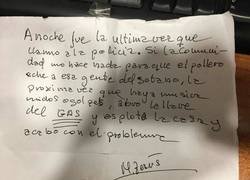 Anoche fue la ultima vez que
llamo a la policia. Si la comuni
dad no hace nada para que el pollero
eche a esa gente del sotano, la
proxima vez que haya musica
ruidos o golpes, abro la llave
del GAS y exploto la casa y
acabo con el problema